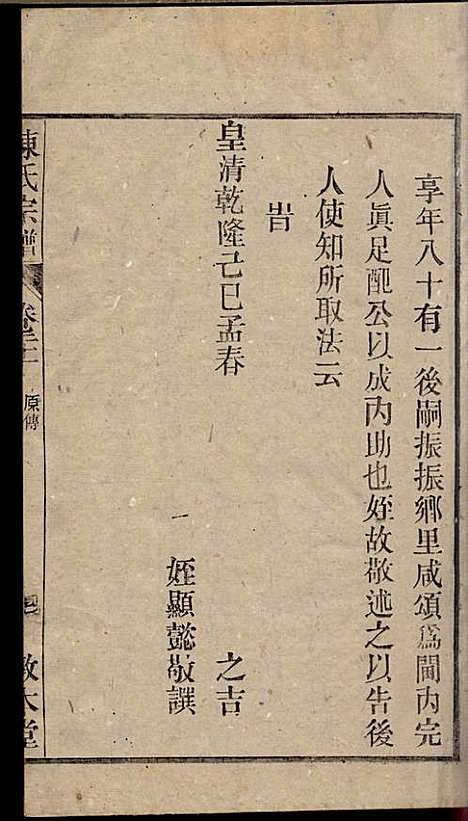 享年八十有一後嗣振振鄉里咸頌爲閫內完
人眞足配公以成內助也姪故敬述之以告後
人使知所取法云
旹
皇清乾隆己巳孟春
之吉
姪顯懿敬譔
陳氏宗譜
卷二
原傳
敦本堂